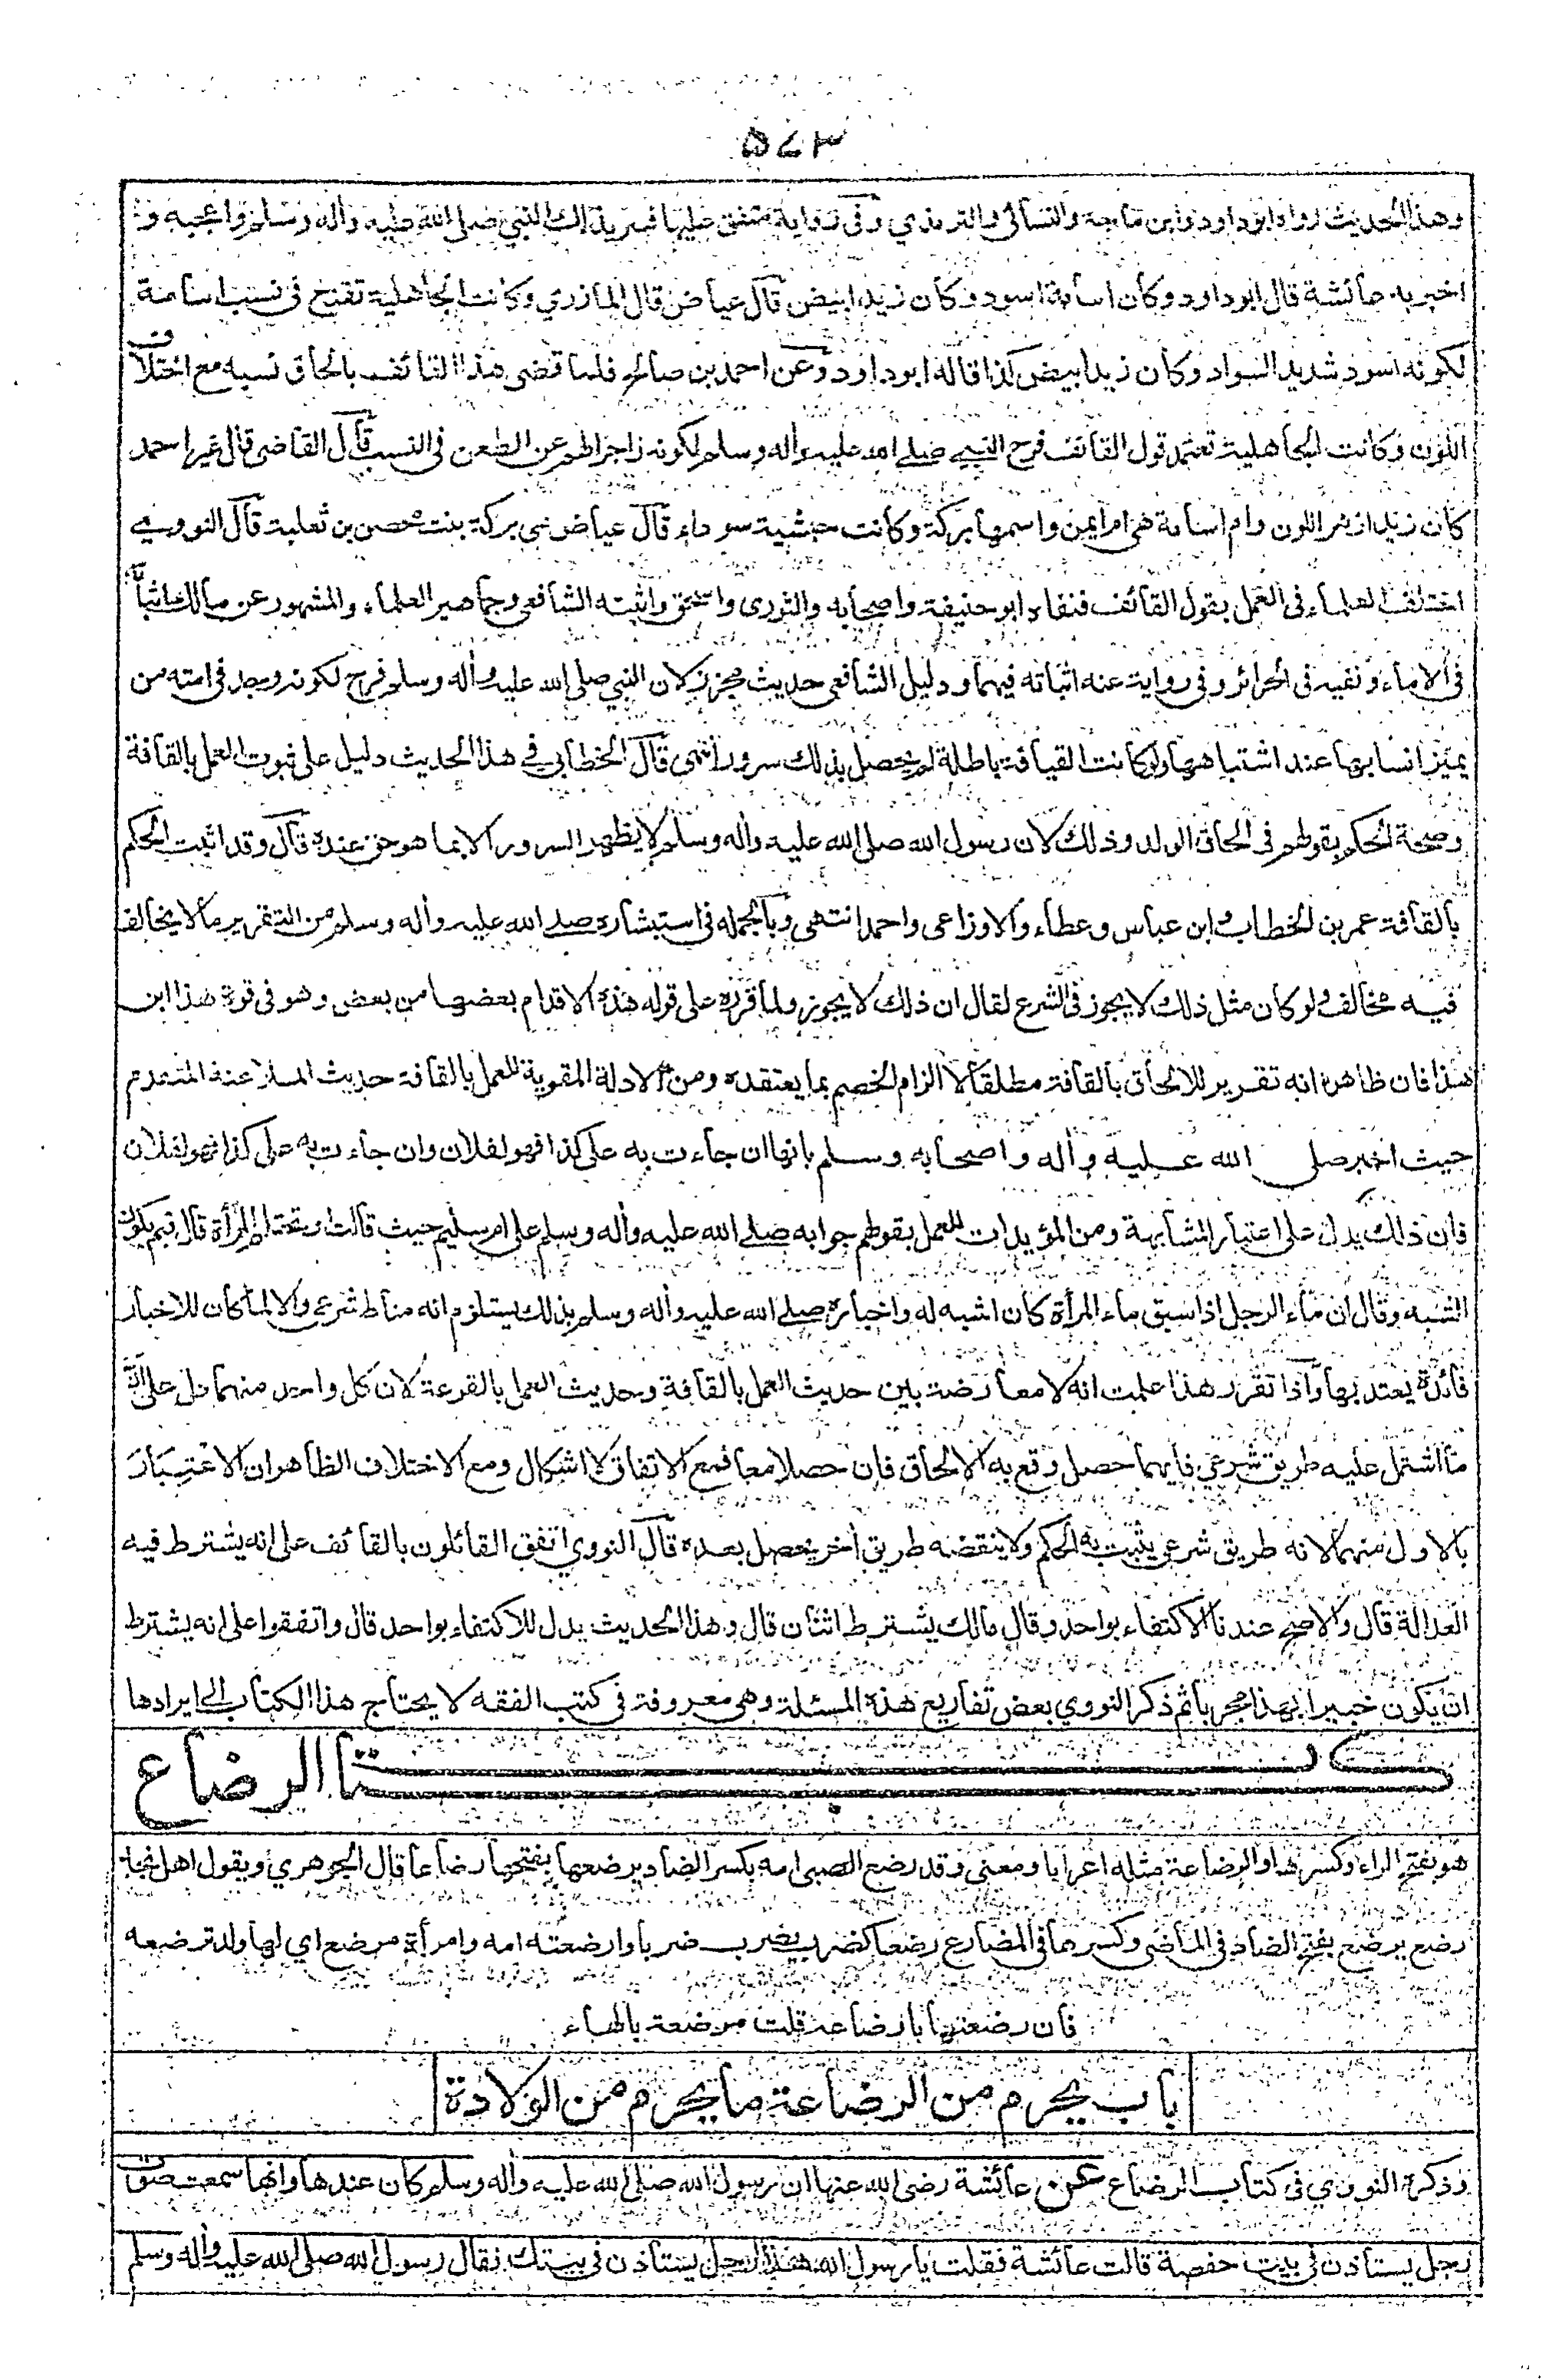 ٥٧٣
وهذا الحديث رواه ابو داود وابن ماجة والنسائى والترمذي وفى رواية متفق عليها فسر بذلك النبي صلى الله عليه واله وسلم واعجبه و
اخبر به عائشة قال ابو داود وكان اسامة اسود وكان زيد ابيض قال عياض قال المازري وكانت الجاهلية تقدح فى نسب اسامة
لكونه اسود شديد السواد وكان زيد ابيض كذا قاله ابو داود وعن احمد بن صالح فلما قضى هذا القائف بالحاق نسبه مع اختلاف
اللون وكانت الجاهلية تعتمد قول القائف فرح النبي صلى الله عليه واله وسلم لكونه زاجرا لهم عن الطعن فى النسب قال القاضى قال غير احمد
كان زيد ازهر اللون وام اسامة هى ام ايمن واسمها بركة وكانت حبشية سوداء قال عياض هى بركة بنت محصن بن ثعلبة قال النووي
اختلف العلماء فى العمل بقول القائف فنفاه ابو حنيفة واصحابه والثورى واسحق واثبته الشافعي وجماهير العلماء والمشهور عن مالك اثباته
فى الاماء ونفيه فى الحرائر وفى رواية عنه اثباته فيهما ودليل الشافعي حديث مجزز لان النبي صلى الله عليه واله وسلم فرح لكونه وجد فى امته من
يميز انسابها عند اشتباهها ولو كانت القيافة باطلة لم يحصل بذلك سرور انتهى قال الخطابي في هذا الحديث دليل على ثبوت العمل بالقافة
وصحة الحكم بقولهم فى الحاق الولد وذلك لان رسول الله صلى الله عليه واله وسلم لا يظهر السرور الا بما هو حق عنده قال وقد اثبت الحكم
بالقافة عمر بن الخطاب وابن عباس وعطاء والاوزاعى واحمد انتهى وبالجمله فى استبشاره صلى الله عليه واله وسلم من التقرير ما لا يخالف
فيه مخالف ولو كان مثل ذلك لا يجوز فى الشرع لقال ان ذلك لا يجوز ولما قرره على قوله هذه الاقدام بعضها من بعض وهو فى قوة هذا ابن
هذا فان ظاهره انه تقرير للالحاق بالقافة مطلقا لا الزام الخصم بما يعتقده ومن الادلة المقوية للعمل بالقافة حديث الملاعنة المتقدم
حيث اخبر صلى الله عليه واله واصحابه وسلم بانها ان جاءت به على كذا فهو لفلان وان جاءت به على كذا فهو لفلان
فان ذلك يدل على اعتبار المشابهة ومن المؤيدات للعمل بقولهم جوابه صلى الله عليه واله وسلم على ام سليم حيث قالت او تحتلم المرأة قال فبم يكون
الشبه وقال ان ماء الرجل اذا سبق ماء المرأة كان اشبه له واخباره صلى الله عليه واله وسلم بذلك يستلزم انه مناط شرعي والا لما كان للاخبار
فائدة يعتد بها واذا تقرر هذا علمت انه لا معارضة بين حديث العمل بالقافة وحديث العمل بالقرعة لان كل واحد منهما دل على ان
ما اشتمل عليه طريق شرعي فايهما حصل وقع به الالحاق فان حصلا معا فمع الاتفاق لا اشكال ومع الاختلاف الظاهر ان الاعتبار
بالاول منهما لانه طريق شرعي يثبت به الحكم ولا ينقضه طريق اخر يحصل بعده قال النووي اتفق القائلون بالقائف على انه يشترط فيه
العدالة قال والاصح عندنا الاكتفاء بواحد وقال مالك يشترط اثنان قال وهذا الحديث يدل للاكتفاء بواحد قال واتفقوا على انه يشترط
ان يكون خبيرا بهذا مجربا ثم ذكر النووي بعض تفاريع هذه المسئلة وهى معروفة فى كتب الفقه لا يحتاج هذا الكتاب الى ايرادها
كتاب الرضاع
هو بفتح الراء وكسرها والرضاعة مثله اعرابا ومعنى وقد رضع الصبى امه بكسر الضاد يرضعها بفتحها رضاعا قال الجوهري ويقول اهل نجد
رضع يرضع بفتح الضاد فى الماضى وكسرها فى المضارع رضعا كضرب يضرب ضربا وارضعته امه وامرأة مرضع اي لها ولد ترضعه
فان وصفتها بارضاعه قلت مرضعة بالهاء
باب يحرم من الرضاعة ما يحرم من الولادة
وذكره النووي فى كتاب الرضاع عن عائشة رضى الله عنها ان رسول الله صلى الله عليه واله وسلم كان عندها وانها سمعت صوت
رجل يستأذن فى بيت حفصة قالت عائشة فقلت يا رسول الله هذا رجل يستأذن فى بيتك فقال رسول الله صلى الله عليه واله وسلم